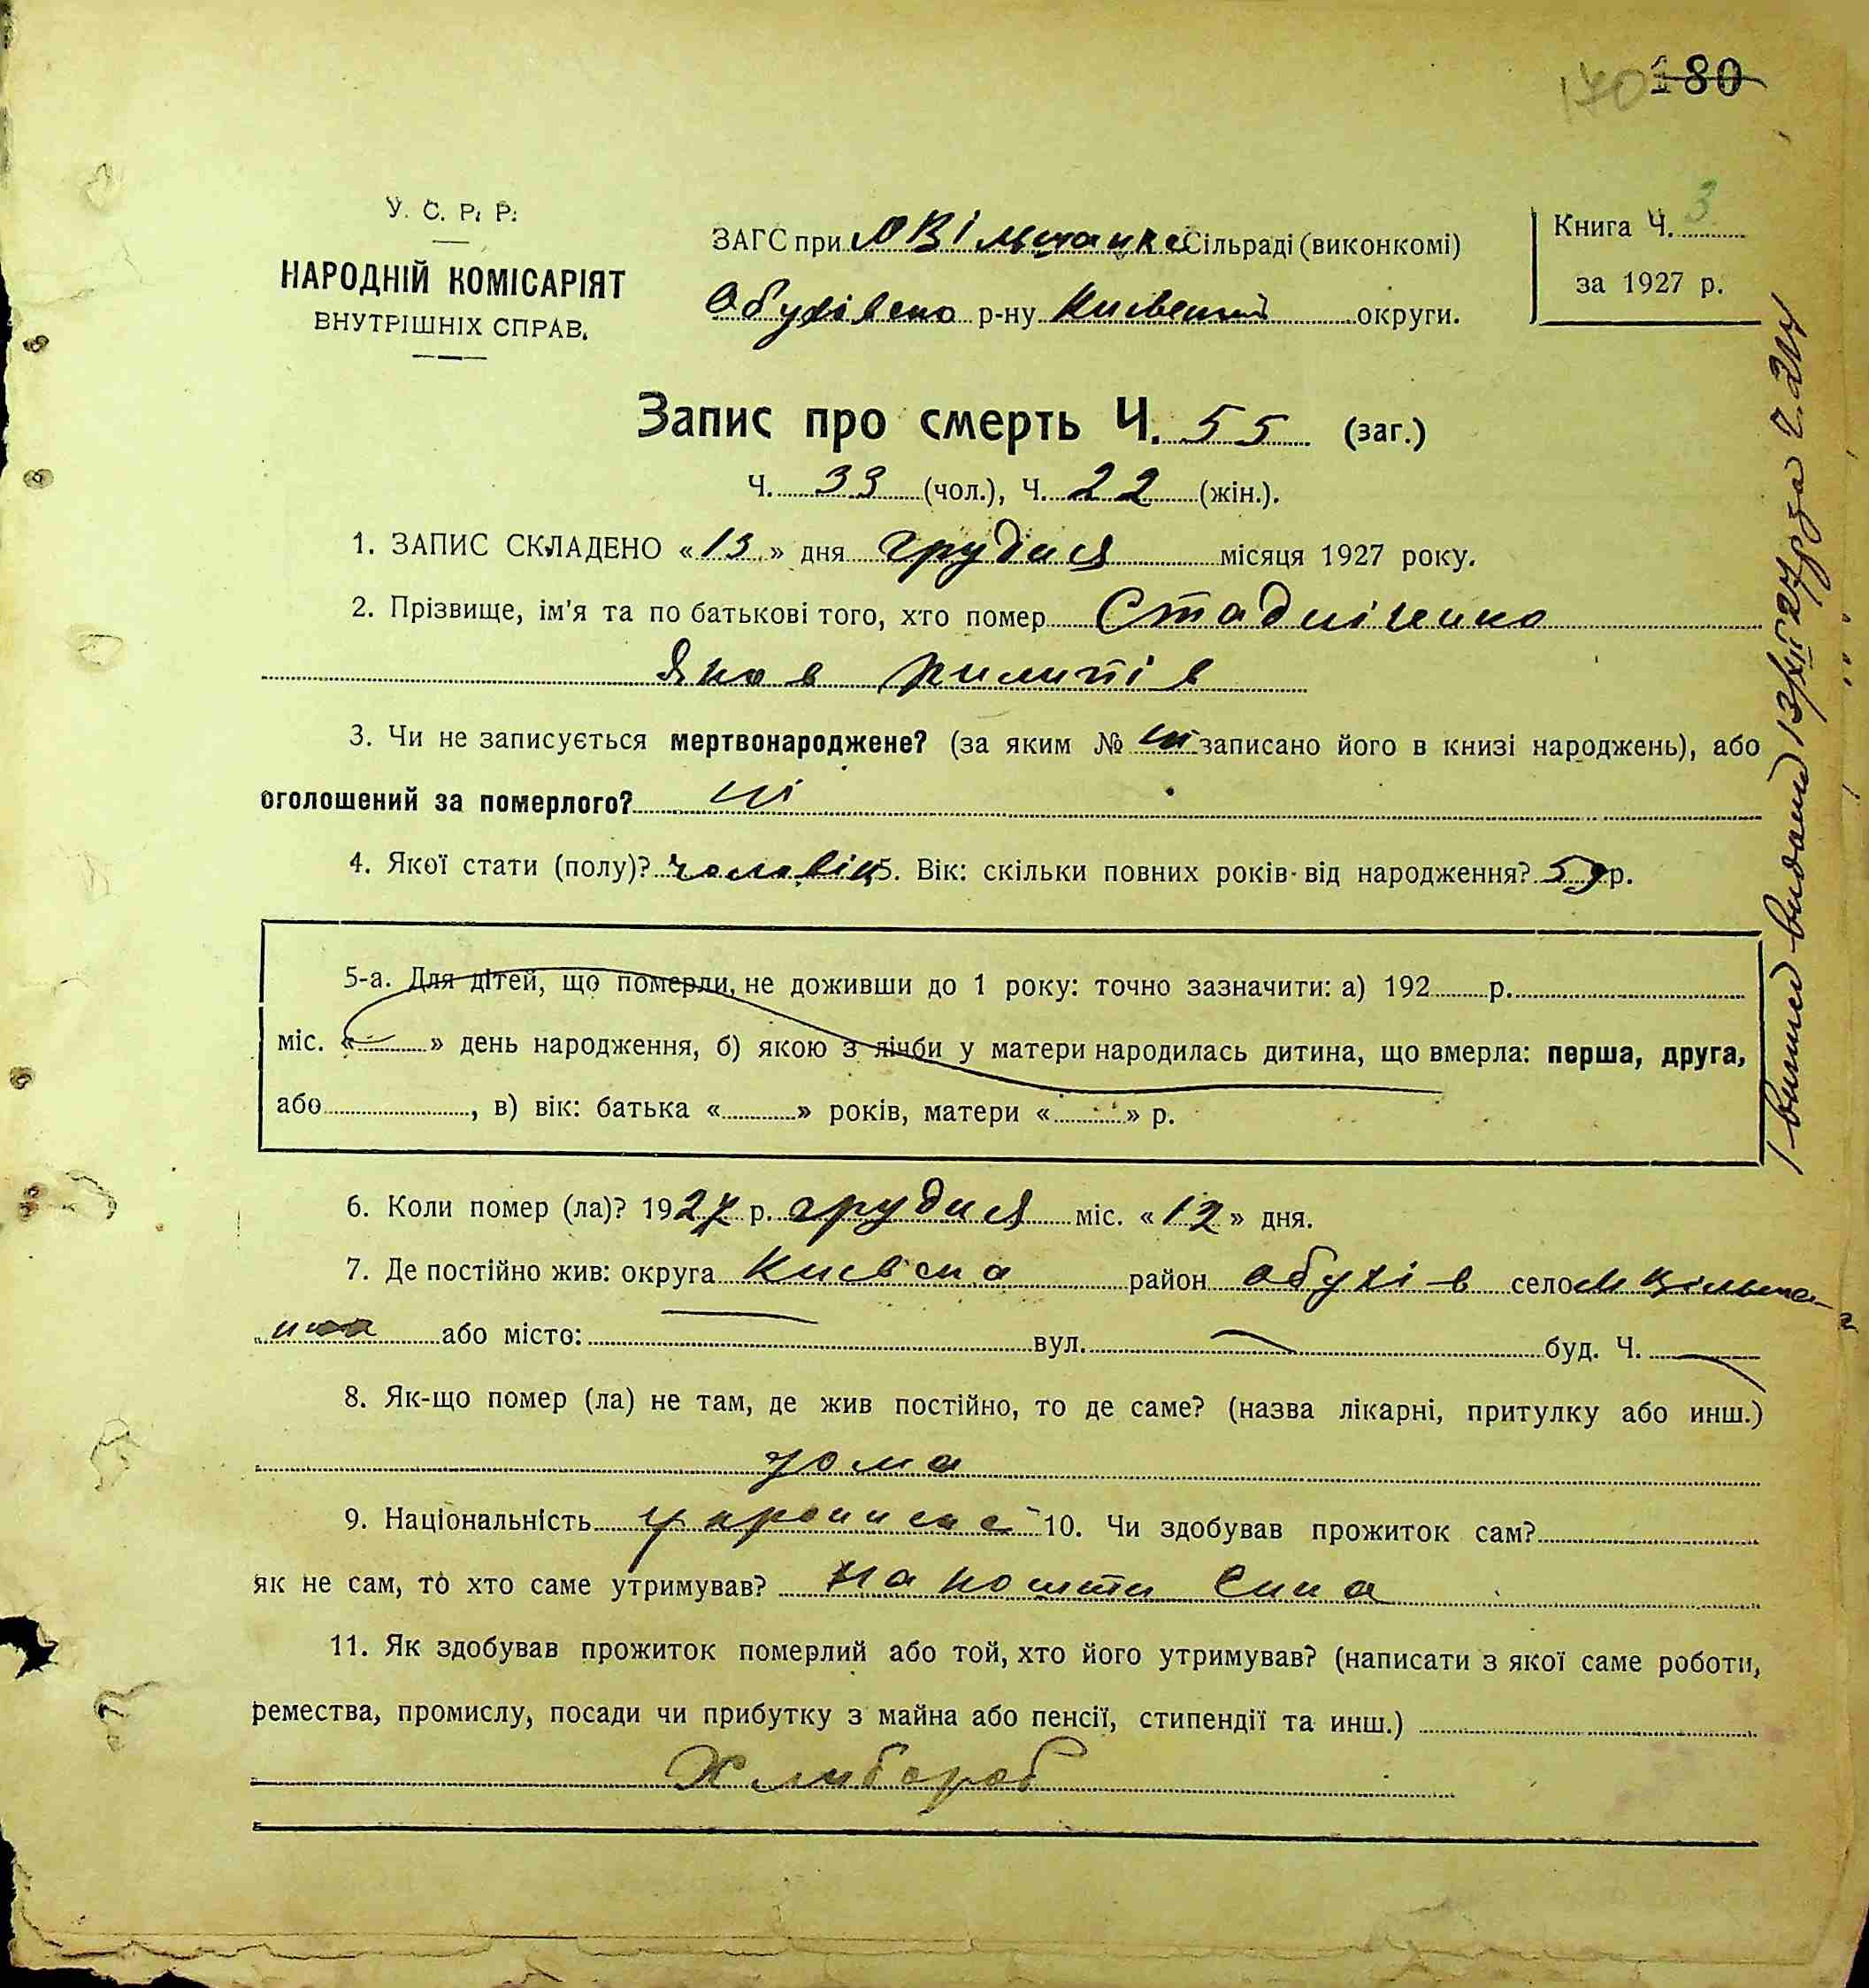 170 180
У. С. Р. Р.
НАРОДНІЙ КОМІСАРІЯТ
ВНУТРІШНІХ СПРАВ.
ЗАГС при Сільраді (виконкомі)
р-ну округи.
Книга Ч. 3
за 1927 р.
Запис про смерть Ч. 55 (заг.)
Ч. 33 (чол.), Ч. 22 (жін.).
1. ЗАПИС СКЛАДЕНО «13» дня грудня місяця 1927 року.
2. Прізвище, ім'я та по батькові того, хто помер Стадніченко
Яков
3. Чи не записується мертвонароджене? (за яким № ні записано його в книзі народжень), або
оголошений за померлого? ні
4. Якої стати (полу)? 5. Вік: скільки повних років від народження? 59 р.
5-а. Для дітей, що померли, не доживши до 1 року: точно зазначити: а) 192 р.
міс. « » день народження, б) якою з лічби у матери народилась дитина, що вмерла: перша, друга,
або , в) вік: батька « » років, матери « » р.
6. Коли помер (ла)? 1927 р. грудня міс. «12» дня.
7. Де постійно жив: округа Киівска район Обухів село
або місто: вул. буд. Ч.
8. Як-що помер (ла) не там, де жив постійно, то де саме? (назва лікарні, притулку або инш.)
дома
9. Національність 10. Чи здобував прожиток сам?
як не сам, то хто саме утримував? на кошти сина
11. Як здобував прожиток померлий або той, хто його утримував? (написати з якої саме роботи,
ремества, промислу, посади чи прибутку з майна або пенсії, стипендії та инш.)
Хлибороб